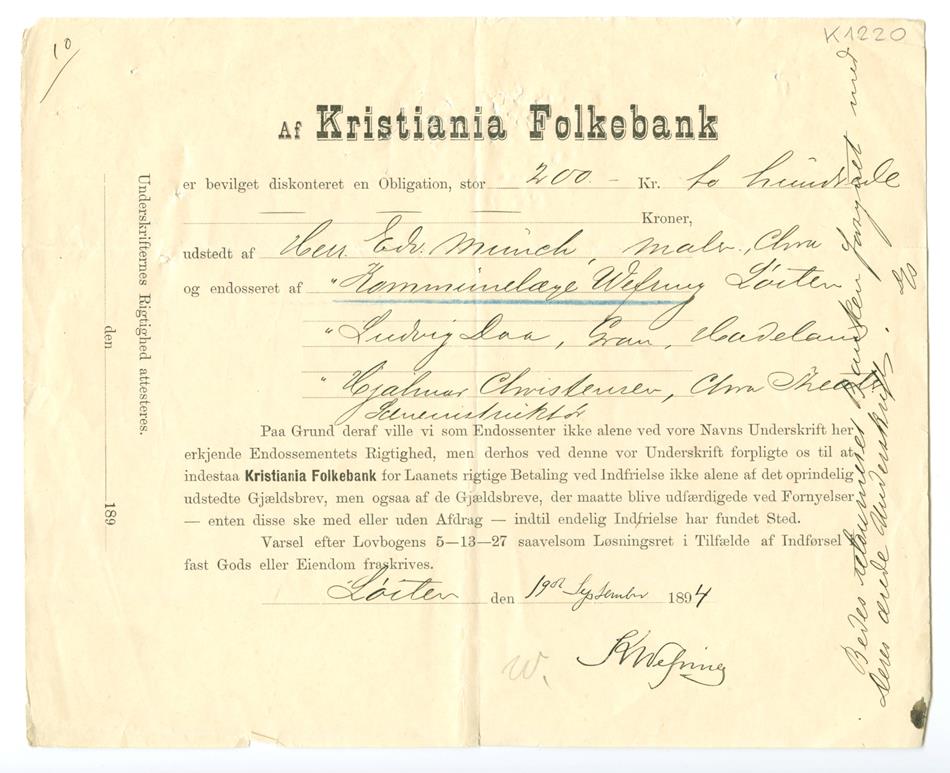 10
K1220
Af Kristiania Folkebank
er bevilget diskonteret en Obligation, stor 200.- Kr. to hundrede
Kroner,
udstedt af Herr Edv. Munch, maler, Chra
og endosseret af " Kommunelæge Wefring Løiten
" Ludvig Daa, Gran, Hadeland
" Hjalmar Christensen, Chra Theat.
Sceneinstruktør
Paa Grund deraf ville vi som Endossenter ikke alene ved vore Navns Underskrift her
erkjende Endossementets Rigtighed, men derhos ved denne vor Underskrift forpligte os til at
indestaa Kristiania Folkebank for Laanets rigtige Betaling ved Indfrielse ikke alene af det oprindelig
udstedte Gjældsbrev, men ogsaa af de Gjældsbreve, der maatte blive udfærdigede ved Fornyelser
— enten disse ske med eller uden Afdrag — indtil endelig Indfrielse har fundet Sted.
Varsel efter Lovbogens 5—13—27 saavelsom Løsningsret i Tilfælde af Indførsel i
fast Gods eller Eiendom fraskrives.
Løiten den 19de September 1894
KWefring
W.
Underskrifternes Rigtighed attesteres.
den 189
Bedes returneret Banken forsynet med
Deres ærede Underskrift.